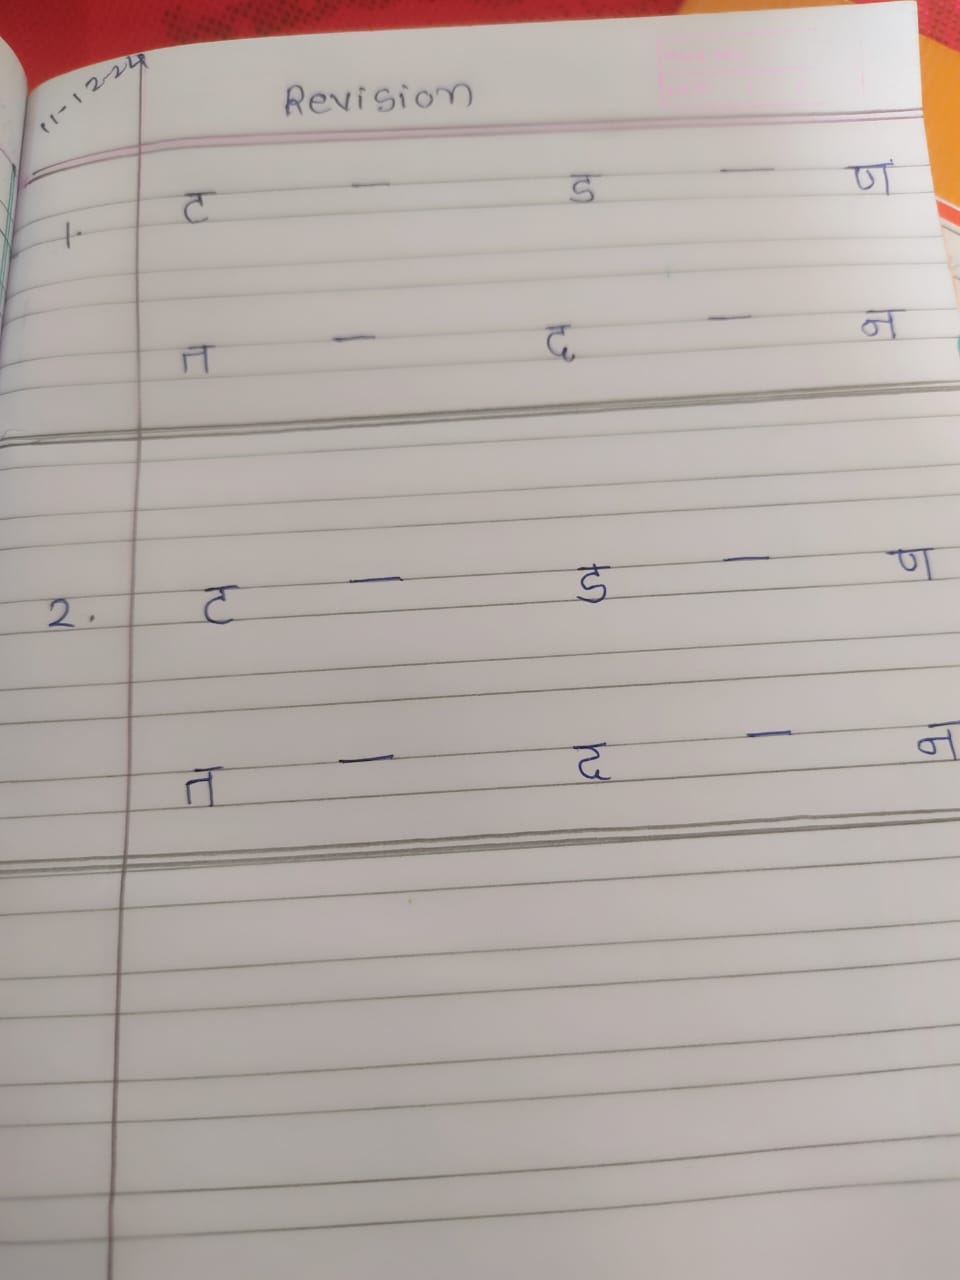 11-12-24
Revision
1. ट — ड — ण
त — द — न
2. ट — ड — ण
त — द — न